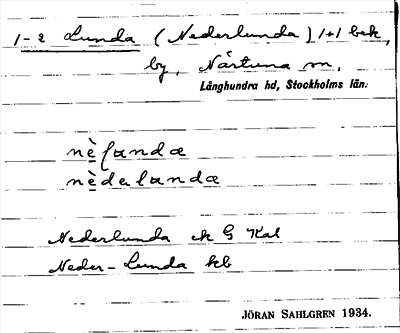 1-2 Lunda (Nederlunda) 1+1 bek,
by, Närtuna sn,
Långhundra hd, Stockholms län.
nèlandæ
nèdelandæ
Nederlunda ek G Kal
Neder-Lunda kb
JÖRAN SAHLGREN 1934.